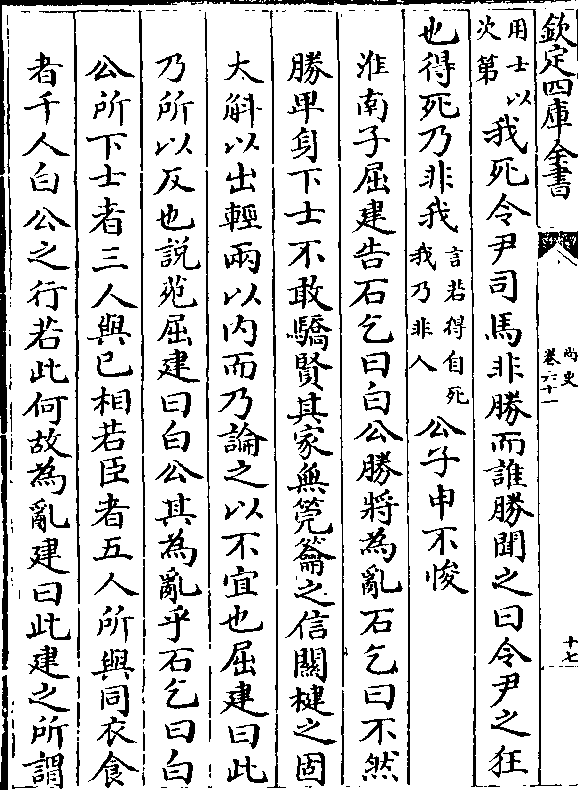 欽定四庫全書
尚史
卷六十一
十七
用士以
次第
我死令尹司馬非勝而誰勝聞之曰令尹之狂
也得死乃非我
言若得自死
我乃非人
公子申不悛
淮南子屈建告石乞曰白公勝將為亂石乞曰不然
勝卑身下士不敢驕賢其家無筦籥之信關楗之固
大斛以出輕兩以内而乃論之以不宜也屈建曰此
乃所以反也說苑屈建曰白公其為亂乎石乞曰白
公所下士者三人與已相若臣者五人所與同衣食
者千人白公之行若此何故為亂建曰此建之所謂